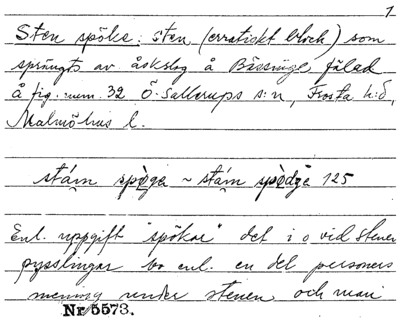 1
Sten spöke: sten (erratiskt block) som
sprängts av åskslag å Bässinge fälad
å fig. num. 32 Ö. Sallerups s:n, Frosta h:d,
Malmöhus l.
stám spǫ̀ga ~ stám spǫ̀dʒa 125
Enl. uppgift "spökar" det i o vid stenen
pysslingar bo enl. en del personers
mening under stenen och man
Nr 5573.